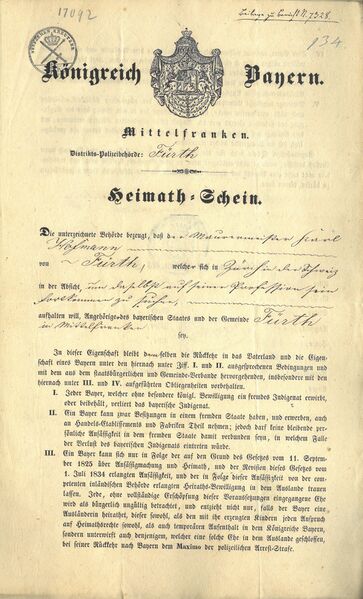 17092
Beilage zu Bericht N. 7328.
134.
Königreich Bayern.
Mittelfranken.
Distrikts-Polizeibehörde: Fürth
Heimath-Schein.
Die unterzeichnete Behörde bezeugt, daß der Maurermeister Karl
Hofmann
von Fürth, welcher sich in Zürich der Schweiz
in der Absicht, um daselbst auf seiner Profession sein
Fortkommen zu suchen,
aufhalten will, Angehöriger des bayerischen Staates und der Gemeinde Fürth
in Mittelfranken
sey.
In dieser Eigenschaft bleibt demselben die Rückkehr in das Vaterland und die Eigen-
schaft eines Bayern unter den hiernach unter Ziff. I. und II. ausgesprochenen Bedingungen und
mit den aus dem staatsbürgerlichen und Gemeinde-Verbande hervorgehenden, insbesondere mit den
hiernach unter III. und IV. aufgeführten Obliegenheiten vorbehalten.
I. Jeder Bayer, welcher ohne besondere königl. Bewilligung ein fremdes Indigenat erwirbt,
oder beibehält, verliert das bayerische Indigenat.
II. Ein Bayer kann zwar Besitzungen in einem fremden Staate haben, und erwerben, auch
an Handels-Etablissements und Fabriken Theil nehmen; jedoch darf keine bleibende per-
sönliche Ansäßigkeit in dem fremden Staate damit verbunden seyn, in welchem Falle
der Verlust des bayerischen Indigenats eintreten würde.
III. Ein Bayer kann sich nur in Folge der auf den Grund des Gesetzes vom 11. September
1825 über Ansäßigmachung und Heimath, und der Revision dieses Gesetzes vom
1. Juli 1834 erlangten Ansäßigkeit, und der in Folge dieser Ansäßigkeit von der
competenten inländischen Behörde erlangten Heiraths-Bewilligung im Auslande trauen
lassen. Jede, ohne vollständige Erschöpfung dieser Voraussetzungen eingegangene Ehe
wird als bürgerlich ungiltig betrachtet, und entzieht nicht nur, falls der Bayer eine
Ausländerin heirathet, dieser sowohl, als den mit ihr erzeugten Kindern jeden Anspruch
auf Heimathsrechte sowohl, als auch temporären Aufenthalt in dem Königreich Bayern,
sondern unterwirft auch denjenigen, welcher eine solche Ehe in dem Auslande geschlossen,
bei seiner Rückkehr nach Bayern dem Maximo der polizeilichen Arrest-Strafe.